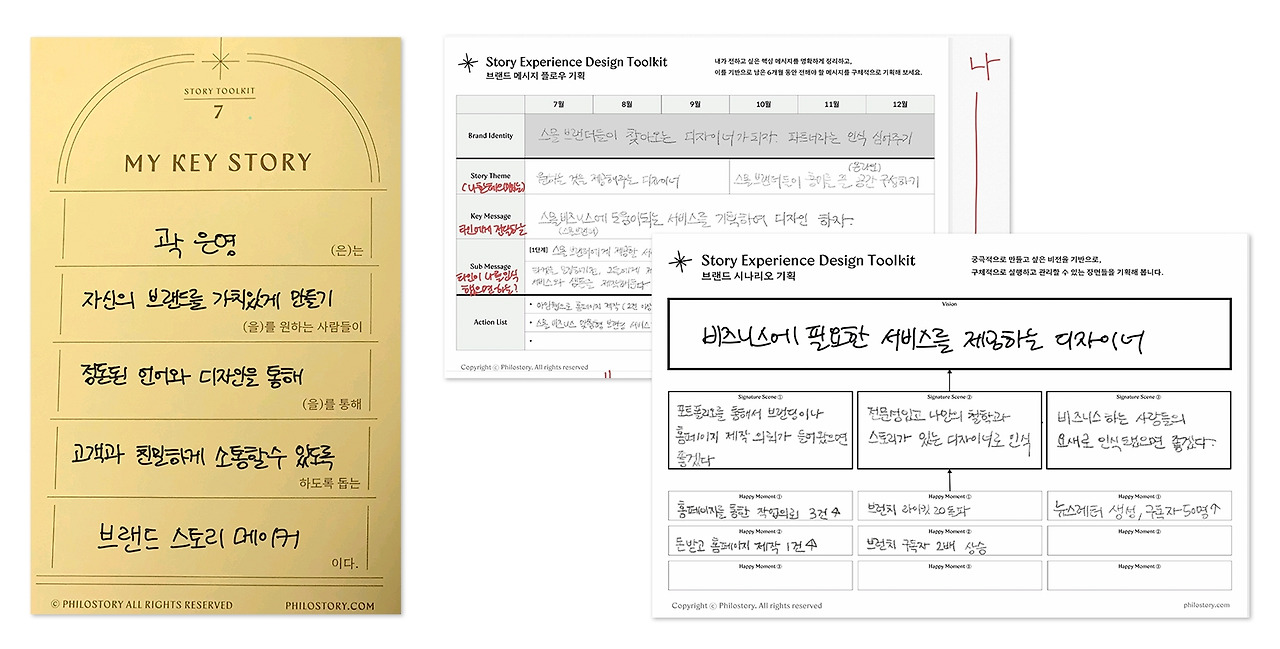 STORY TOOLKIT
7
MY KEY STORY
곽 은영
(은)는
자신의 브랜드를 가치있게 만들기
(을)를 원하는 사람들이
정돈된 언어와 디자인을 통해
(을)를 통해
고객과 친밀하게 소통할수 있도록
하도록 돕는
브랜드 스토리 메이커
이다.
© PHILOSTORY ALL RIGHTS RESERVED
PHILOSTORY.COM
Story Experience Design Toolkit
브랜드 메시지 플로우 기획
내가 전하고 싶은 핵심 메시지를 명확하게 정리하고,
이를 기반으로 남은 6개월 동안 전해야 할 메시지를 구체적으로 기획해 보세요.
나
7월 8월 9월 10월 11월 12월
Brand Identity
스몰브랜더들이 찾아오는 디자이너가되자. 파트너라는 인식 심어주기
Story Theme
원하는 것을 제공해주는 디자이너
(온라인)
스몰브랜더들이 흥미를 준 공간 구성하기
Key Message
타인에게 전달할말
스몰비즈니스에 도움이되는 서비스를 기획하여 디자인 하자.
Sub Message
타인이 나를 인식
했으면 하는?
[1단계] 스몰 브랜더에게 제공할
Action List
Copyright © Philostory. All rights reserved
Story Experience Design Toolkit
브랜드 시나리오 기획
궁극적으로 만들고 싶은 비전을 기반으로,
구체적으로 실행하고 관리할 수 있는 장면들을 기획해 봅니다.
Vision
비즈니스에 필요한 서비스를 제공하는 디자이너
Signature Scene ①
포트폴리오를 통해서 브랜딩이나
홈페이지 제작 의뢰가 들어왔으면
좋겠다
Signature Scene ②
전문성있고 나만의 철학과
스토리가 있는 디자이너로 인식
Signature Scene ③
비즈니스 하는 사람들의
요새로 인식됐으면 좋겠다.
Happy Moment ①
홈페이지를 통한 작업의뢰 3건↑
Happy Moment ①
브런치 라이킷 20돌파
Happy Moment ①
뉴스레터 생성, 구독자 50명↑
Happy Moment ②
돈받고 홈페이지 제작 1건↑
Happy Moment ②
브런치 구독자 2배 상승
Happy Moment ②
Happy Moment ③
Happy Moment ③
Happy Moment ③
Copyright © Philostory. All rights reserved
philostory.com